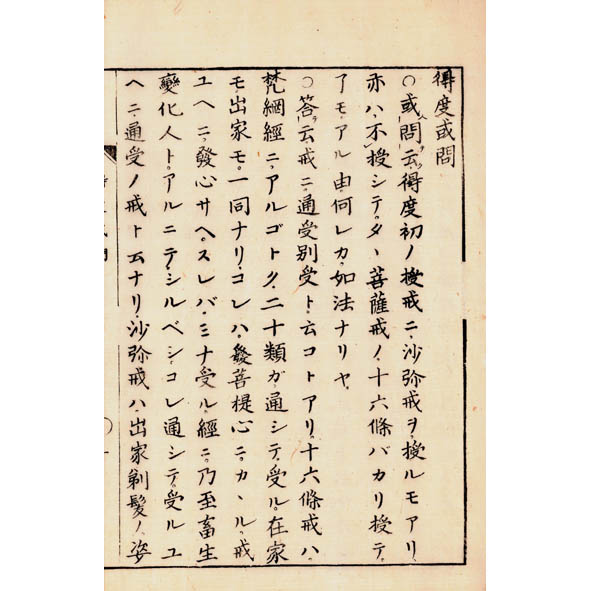 得度或問
○或問云、得度初ノ授戒ニ、沙弥戒ヲ、授ルモアリ、
亦ハ、不授シテ、タヽ菩薩戒ノ、十六條バカリ授テ、
アモ、アル由、何レカ、如法ナリヤ、
○答云、戒ニ、通受別受ト、云コトアリ、十六條戒ハ、
梵網經ニ、アルゴトク、二十類ガ、通シテ、受ル、在家
モ出家モ、一同ナリ、コレハ、發菩提心ニ、カヽル、戒
ユヘニ、發心サヘ、スレバ、ミナ受ル、經ニ、乃至畜生
變化人ト、アルニテ、シルベシ、コレ通シテ、受ルユ
ヘニ、通受ノ戒ト云ナリ、沙弥戒ハ、出家剃髮ノ、姿